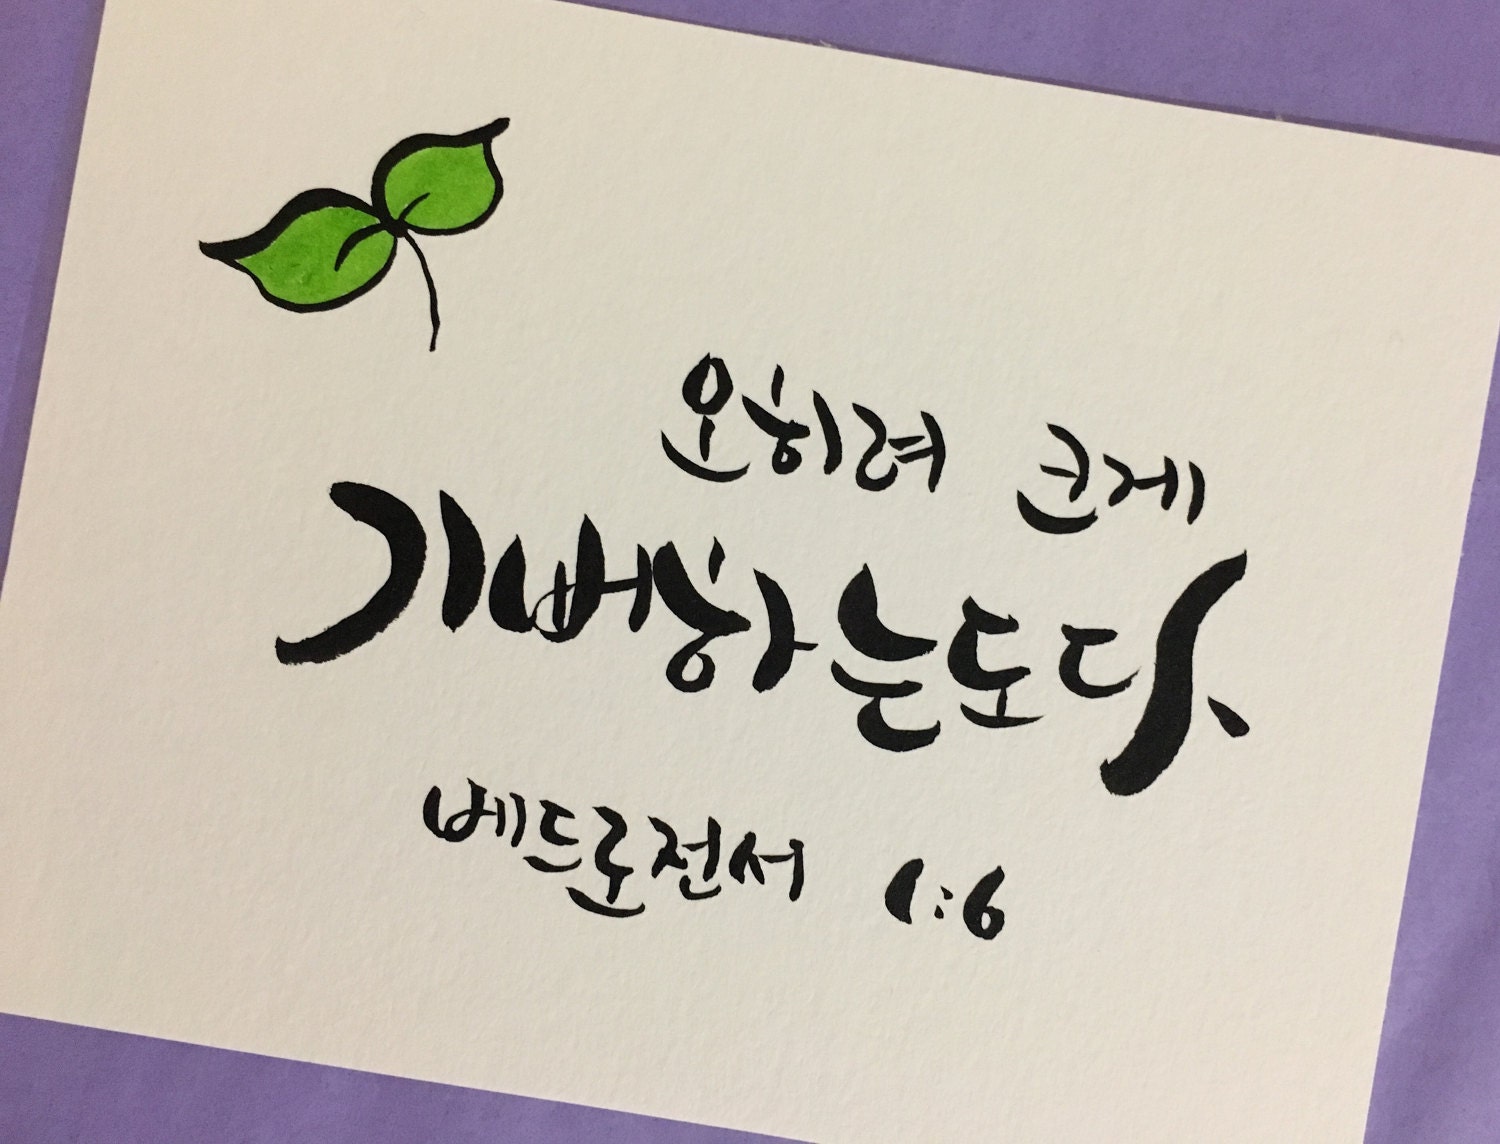 오히려 크게
기뻐하는도다
베드로전서 1:6